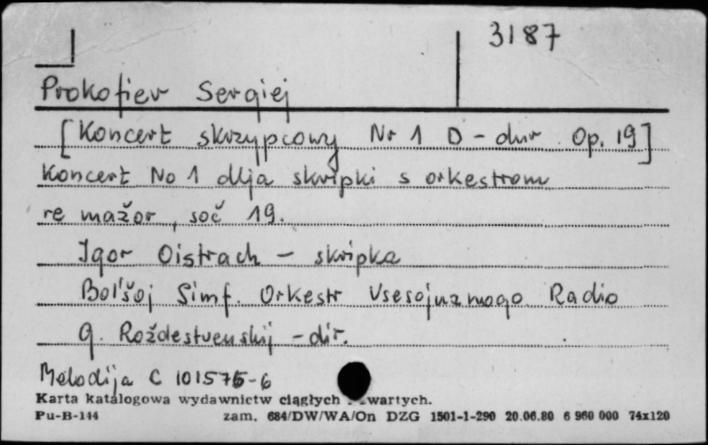 3187
Prokofiev Sergiej
[Koncert skrzypcowy Nr 1 D-dur Op. 19]
Koncert No 1 dlja skripki s orkestrom
re mažor, soč 19.
Igor Oistrach - skripka
Bol'šoj Simf. Orkestr Vsesojuznogo Radio
G. Roždestvenskij - dir.
Melodija C 101575-6
Karta katalogowa wydawnictw ciągłych wartych.
Pu-B-144 zam. 684/DW/WA/On DZG 1501-1-290 20.06.80 6 960 000 74x120